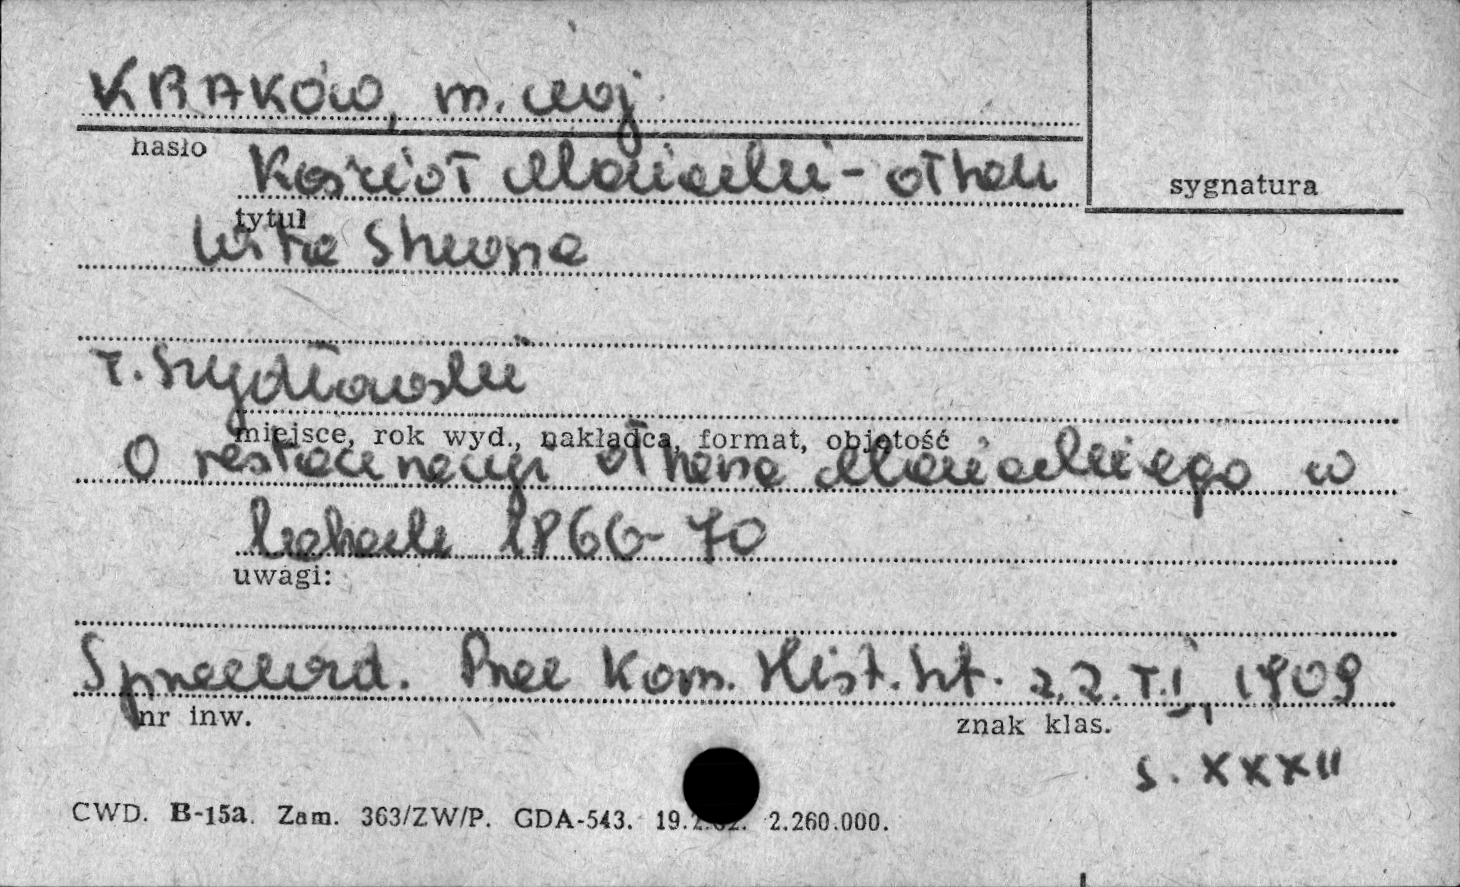 KRAKÓW, m. woj.
hasło
Kościół Mariacki - ołtarz
sygnatura
tytuł
Wita Stwosza
T. Szydłowski
miejsce, rok wyd., nakładca, format, objętość
O restauracji ołtarza Mariackiego w
latach 1866-70
uwagi:
Sprawozd. Prac Kom. Hist. Szt. T.I, 1909
nr inw.
znak klas.
s. XXXII
CWD. B-15a. Zam. 363/ZW/P. GDA-543. 2.260.000.